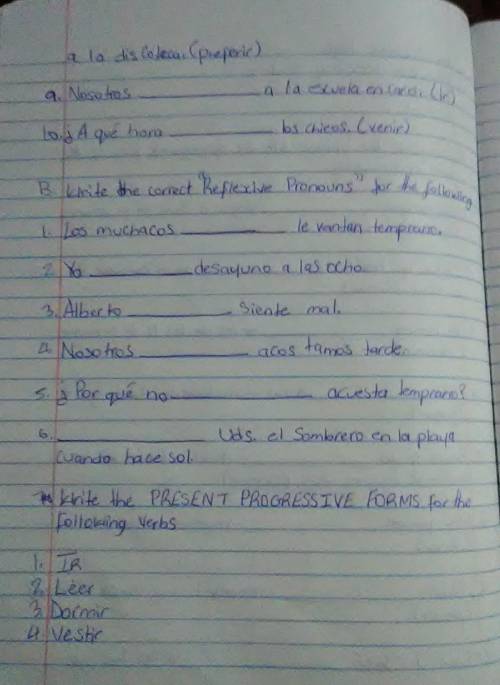 a la discoteca. (preferir)
9. Nosotros __________ a la escuela en carci. (Ir)
10. ¿A qué hora __________ los chicos. (venir)
B. Write the correct "Reflexive Pronouns" for the following
1. Los muchacos __________ levantan temprano.
2. Yo __________ desayuno a las ocho.
3. Alberto __________ siente mal.
4. Nosotros __________ acostamos tarde.
5. ¿Por qué no __________ acuesta temprano?
6. __________ Uds. el Sombrero en la playa
cuando hace sol.
Write the PRESENT PROGRESSIVE FORMS for the
following verbs
1. IR
2. Leer
3. Dormir
4. Vestir